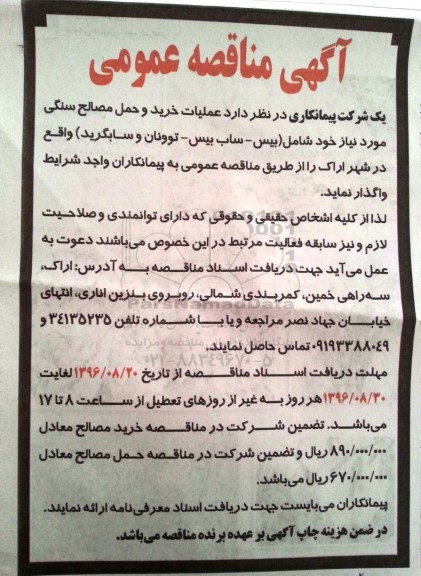 آگهی مناقصه عمومی
یک شرکت پیمانکاری در نظر دارد عملیات خرید و حمل مصالح سنگی
مورد نیاز خود شامل(بیس - ساب بیس- توونان و سابگرید) واقع
در شهر اراک را از طریق مناقصه عمومی به پیمانکاران واجد شرایط
واگذار نماید.
لذا از کلیه اشخاص حقیقی و حقوقی که دارای توانمندی و صلاحیت
لازم و نیز سابقه فعالیت مرتبط در این خصوص می‌باشند دعوت به
عمل می‌آید جهت دریافت اسناد مناقصه به آدرس: اراک،
سه‌راهی خمین، کمربندی شمالی، روبروی بنزین اناری، انتهای
خیابان جهاد نصر مراجعه و یا با شماره تلفن ۳۴۱۳۵۲۳۵ و
۰۹۱۹۳۳۸۸۰۴۹ تماس حاصل نمایند.
مهلت دریافت اسناد مناقصه از تاریخ ۱۳۹۶/۰۸/۲۰ لغایت
۱۳۹۶/۰۸/۳۰ هر روز به غیر از روزهای تعطیل از ساعت ۸ تا ۱۷
می‌باشد. تضمین شرکت در مناقصه خرید مصالح معادل
۸۹۰/۰۰۰/۰۰۰ ریال و تضمین شرکت در مناقصه حمل مصالح معادل
۶۷۰/۰۰۰/۰۰۰ ریال می‌باشد.
پیمانکاران می‌بایست جهت دریافت اسناد معرفی‌نامه ارائه نمایند.
در ضمن هزینه چاپ آگهی بر عهده برنده مناقصه می‌باشد.
ParsNamadData
۰۲۱-۸۸۳۴۹۶۷۰-۵